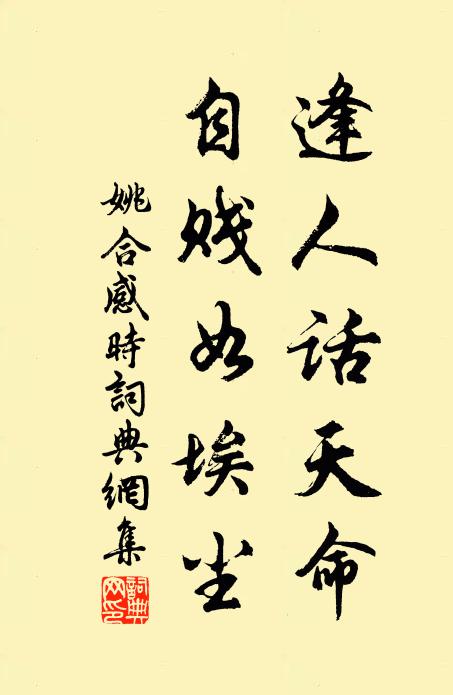 逢人話天命
自贱如埃尘
姚合感時詞典網集
詞典网印